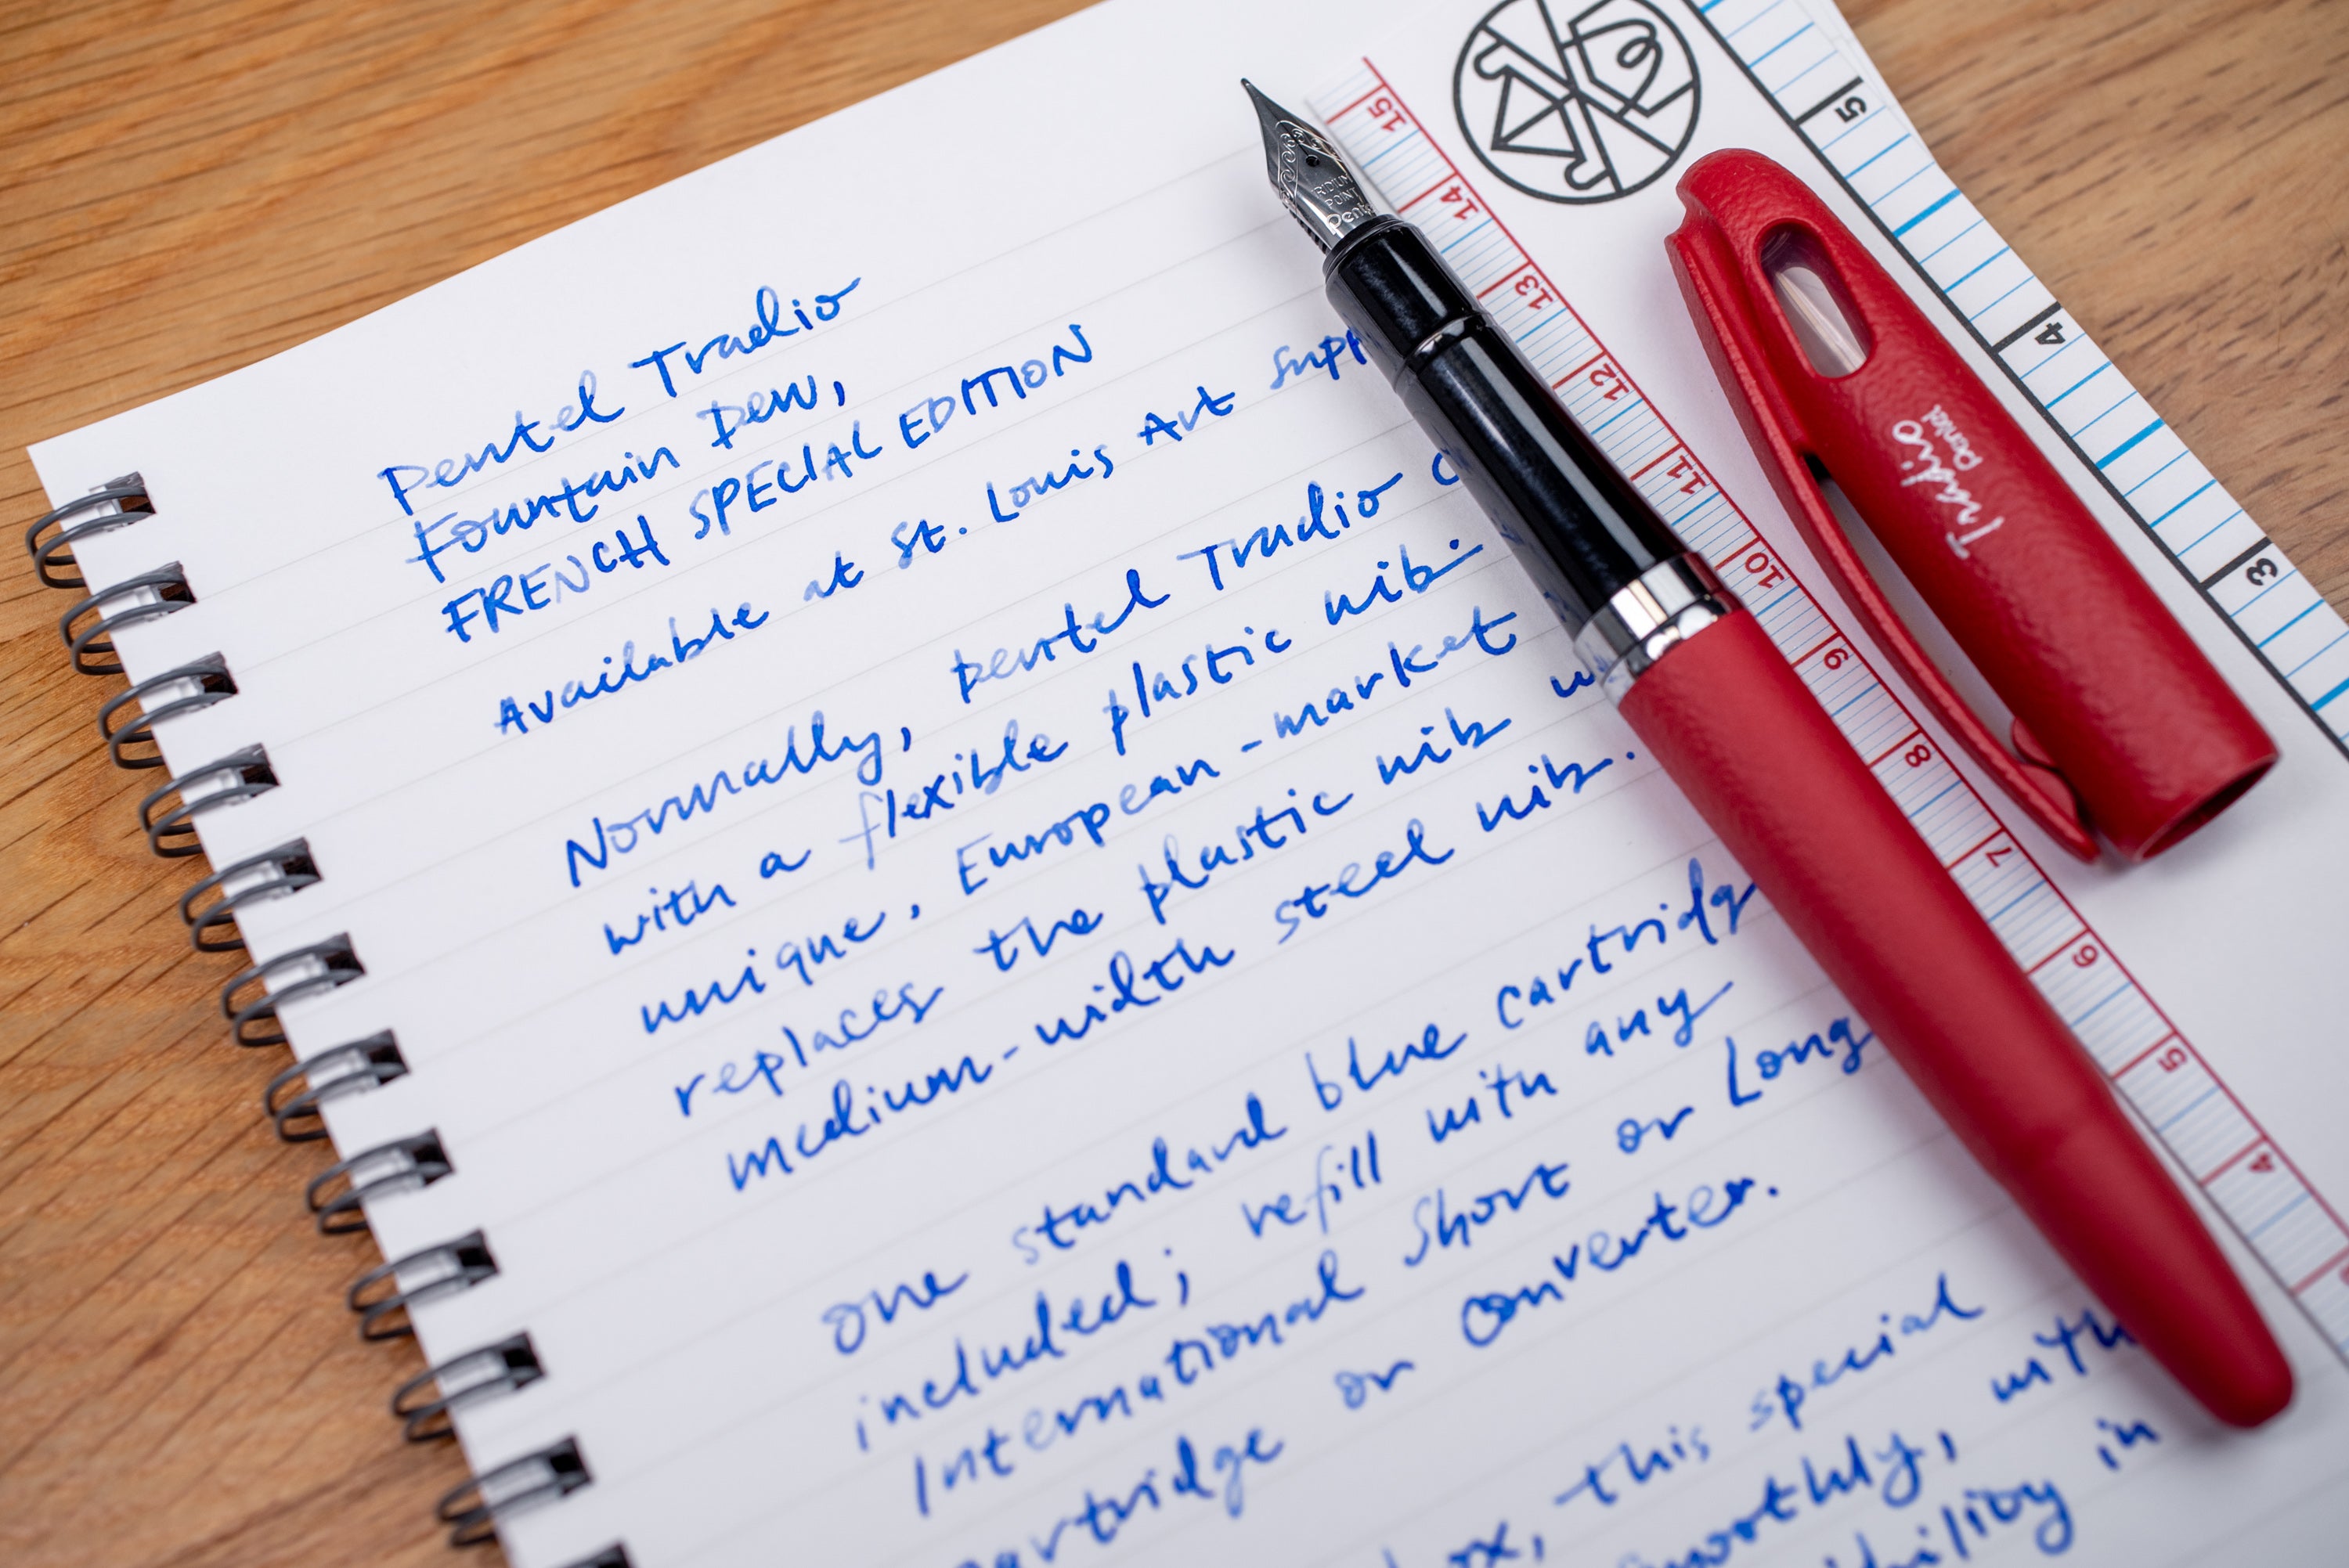 Pentel Tradio
Fountain Pen,
FRENCH SPECIAL EDITION
Available at St. Louis Art
Normally, Pentel Tradio
with a flexible plastic nib.
unique, European-market
replaces the plastic nib
medium-width steel nib.
One standard blue
included; refill with any
International Short or Long
cartridge or converter.
this special
smoothly, with
in
IRIDIUM
POINT
Pentel
Tradio
Pentel
15
14
13
12
11
10
9
8
7
6
5
4
5
4
3